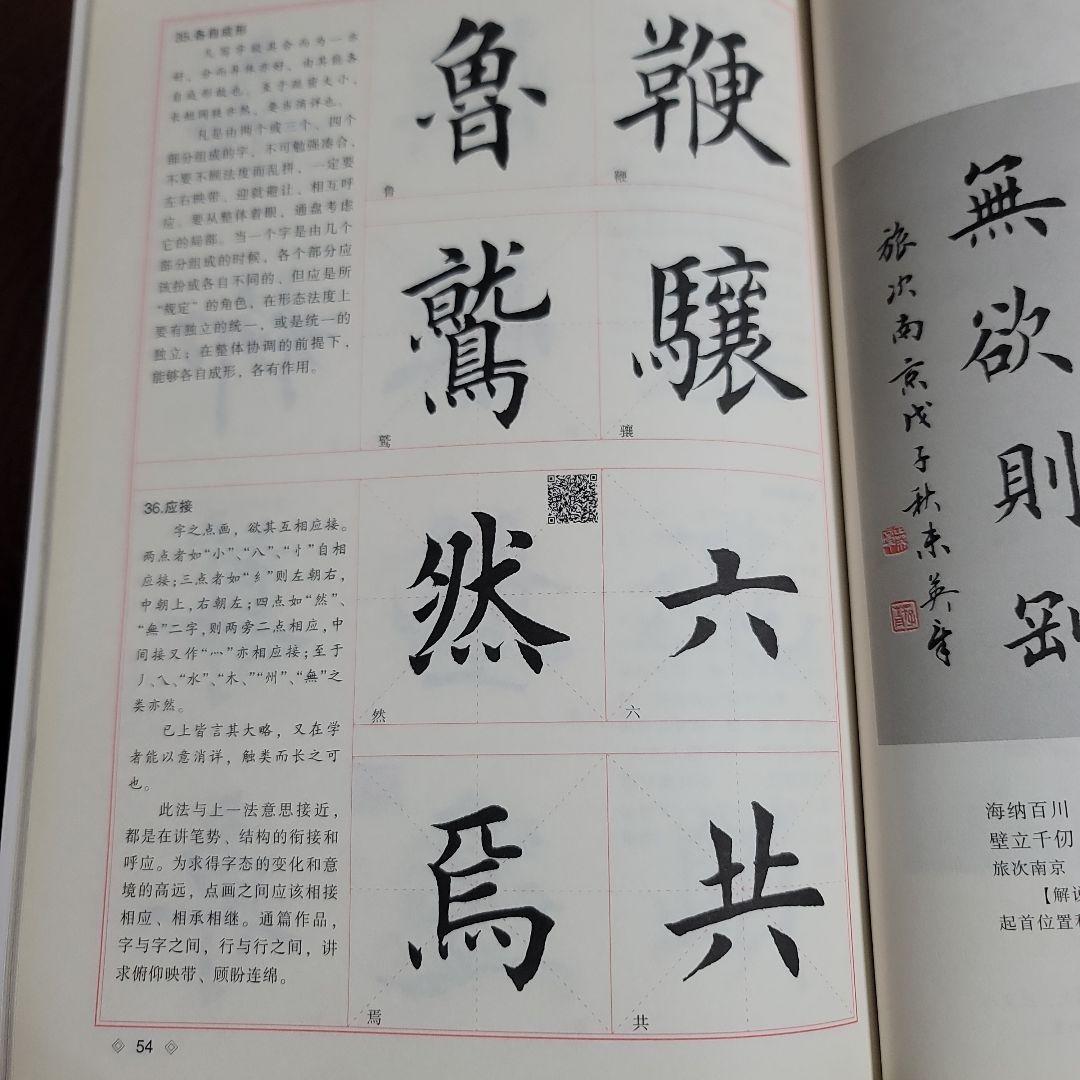 35.各自成形
凡写字欲其合而为一亦
好，分而异体亦好，由其能各
自成形故也。至于疏密大小，
长短阔狭亦然，要当消详也。
凡是由两个或三个、四个
部分组成的字，不可勉强凑合，
不要不顾法度而乱拼，一定要
左右映带、迎就避让、相互呼
应。要从整体着眼，通盘考虑
它的局部。当一个字是由几个
部分组成的时候，各个部分应
该扮成各自不同的、但应是所
“规定”的角色，在形态法度上
要有独立的统一，或是统一的
独立；在整体协调的前提下，
能够各自成形，各有作用。
魯
鲁
鞭
鞭
鷲
鹫
驤
骧
36.应接
字之点画，欲其互相应接。
两点者如“小”、“八”、“忄”自相
应接；三点者如“纟”则左朝右，
中朝上，右朝左；四点如“然”、
“無”二字，则两旁二点相应，中
间接又作“灬”亦相应接；至于
丿、乀、“水”、“木、”“州”、“無”之
类亦然。
已上皆言其大略，又在学
者能以意消详，触类而长之可
也。
此法与上一法意思接近，
都是在讲笔势、结构的衔接和
呼应。为求得字态的变化和意
境的高远，点画之间应该相接
相应、相承相继。通篇作品，
字与字之间，行与行之间，讲
求俯仰映带、顾盼连绵。
然
然
六
六
焉
焉
共
共
54
無欲則剛
旅次南京戊子秋末英年
海纳百川
壁立千仞
旅次南京
【解说
起首位置